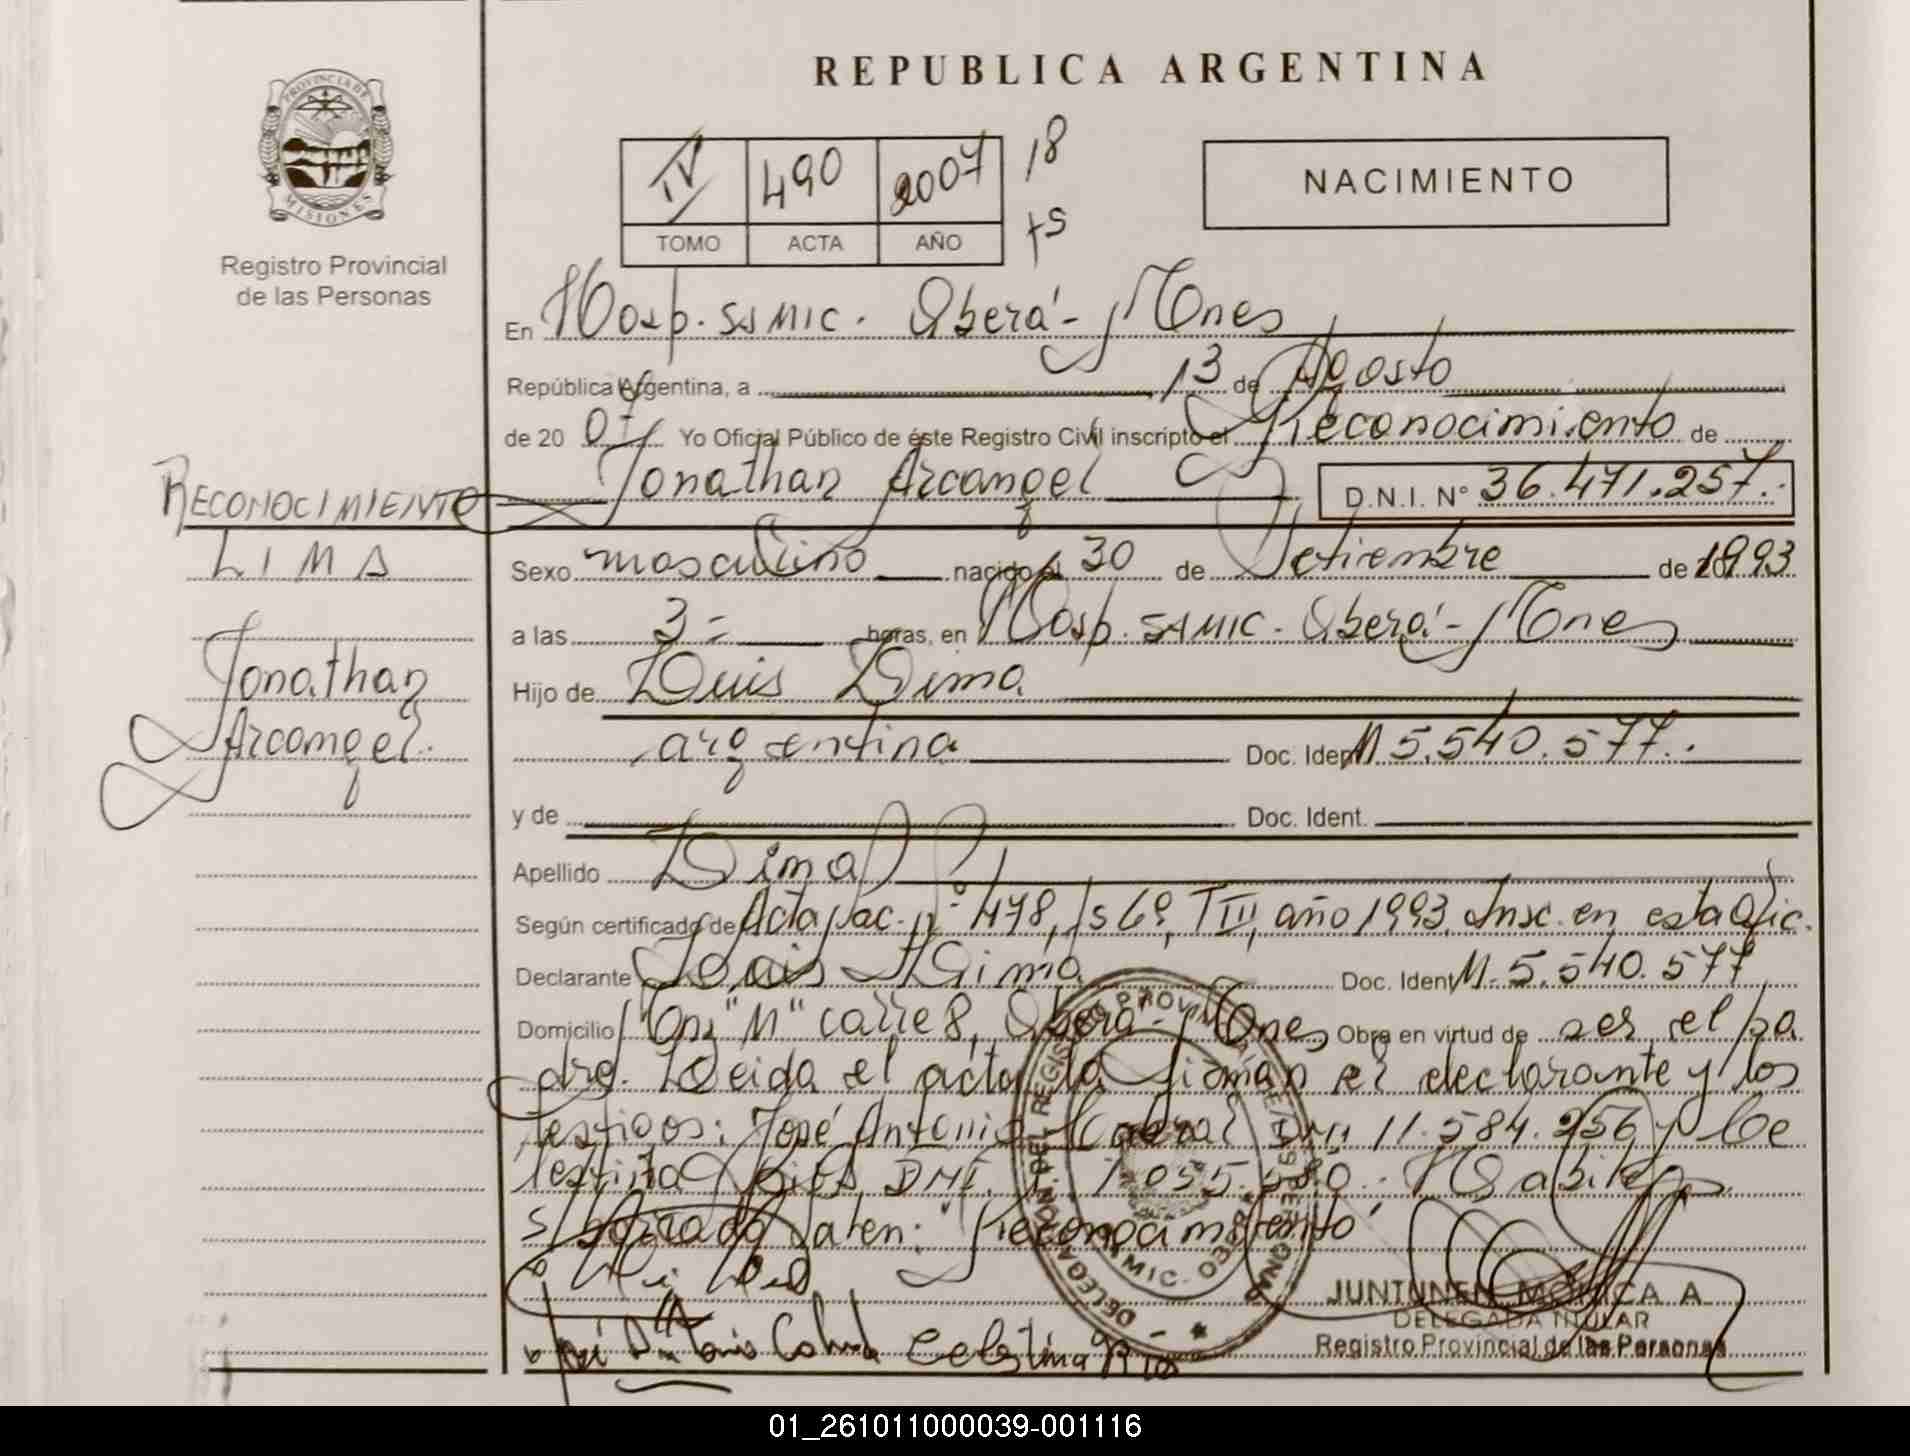 REPUBLICA ARGENTINA
PROVINCIA DE
MISIONES
Registro Provincial
de las Personas
IV 490 2007 18
TOMO ACTA AÑO
NACIMIENTO
En Hosp. SAMIC. Oberá - Mnes
República Argentina, a 13 de Agosto
de 20 07 Yo Oficial Público de éste Registro Civil inscripto el Reconocimiento de
Jonathan Arcangel D.N.I. N° 36.471.257.-
RECONOCIMIENTO
LIMA
Jonathan
Arcangel.
Sexo masculino nacido el 30 de Setiembre de 1993
a las 3 = horas, en Hosp. SAMIC - Oberá - Mnes
Hijo de Luis Lima
argentina Doc. Ident. M 5.540.577.-
y de Doc. Ident.
Apellido Lima
Según certificado de Acta Nac. n° 478, fs 69, T III, año 1993 Insc. en esta Ofic.
Declarante Luis Lima Doc. Ident M. 5.540.577
Domicilio "M" calle 8, Oberá - Mnes Obra en virtud de ser el pa
dre. Leida el acta la firman el declarante y los
testigos: José Antonio Cabral DNI 11.584.256 y Ce
lestina DNI. 055.580.- Habiles
s/borrado aten: "Reconocimiento"
José Antonio Celestina
JUNTUNEN MONICA A.
DELEGADA TITULAR
Registro Provincial de las Personas
01_261011000039-001116